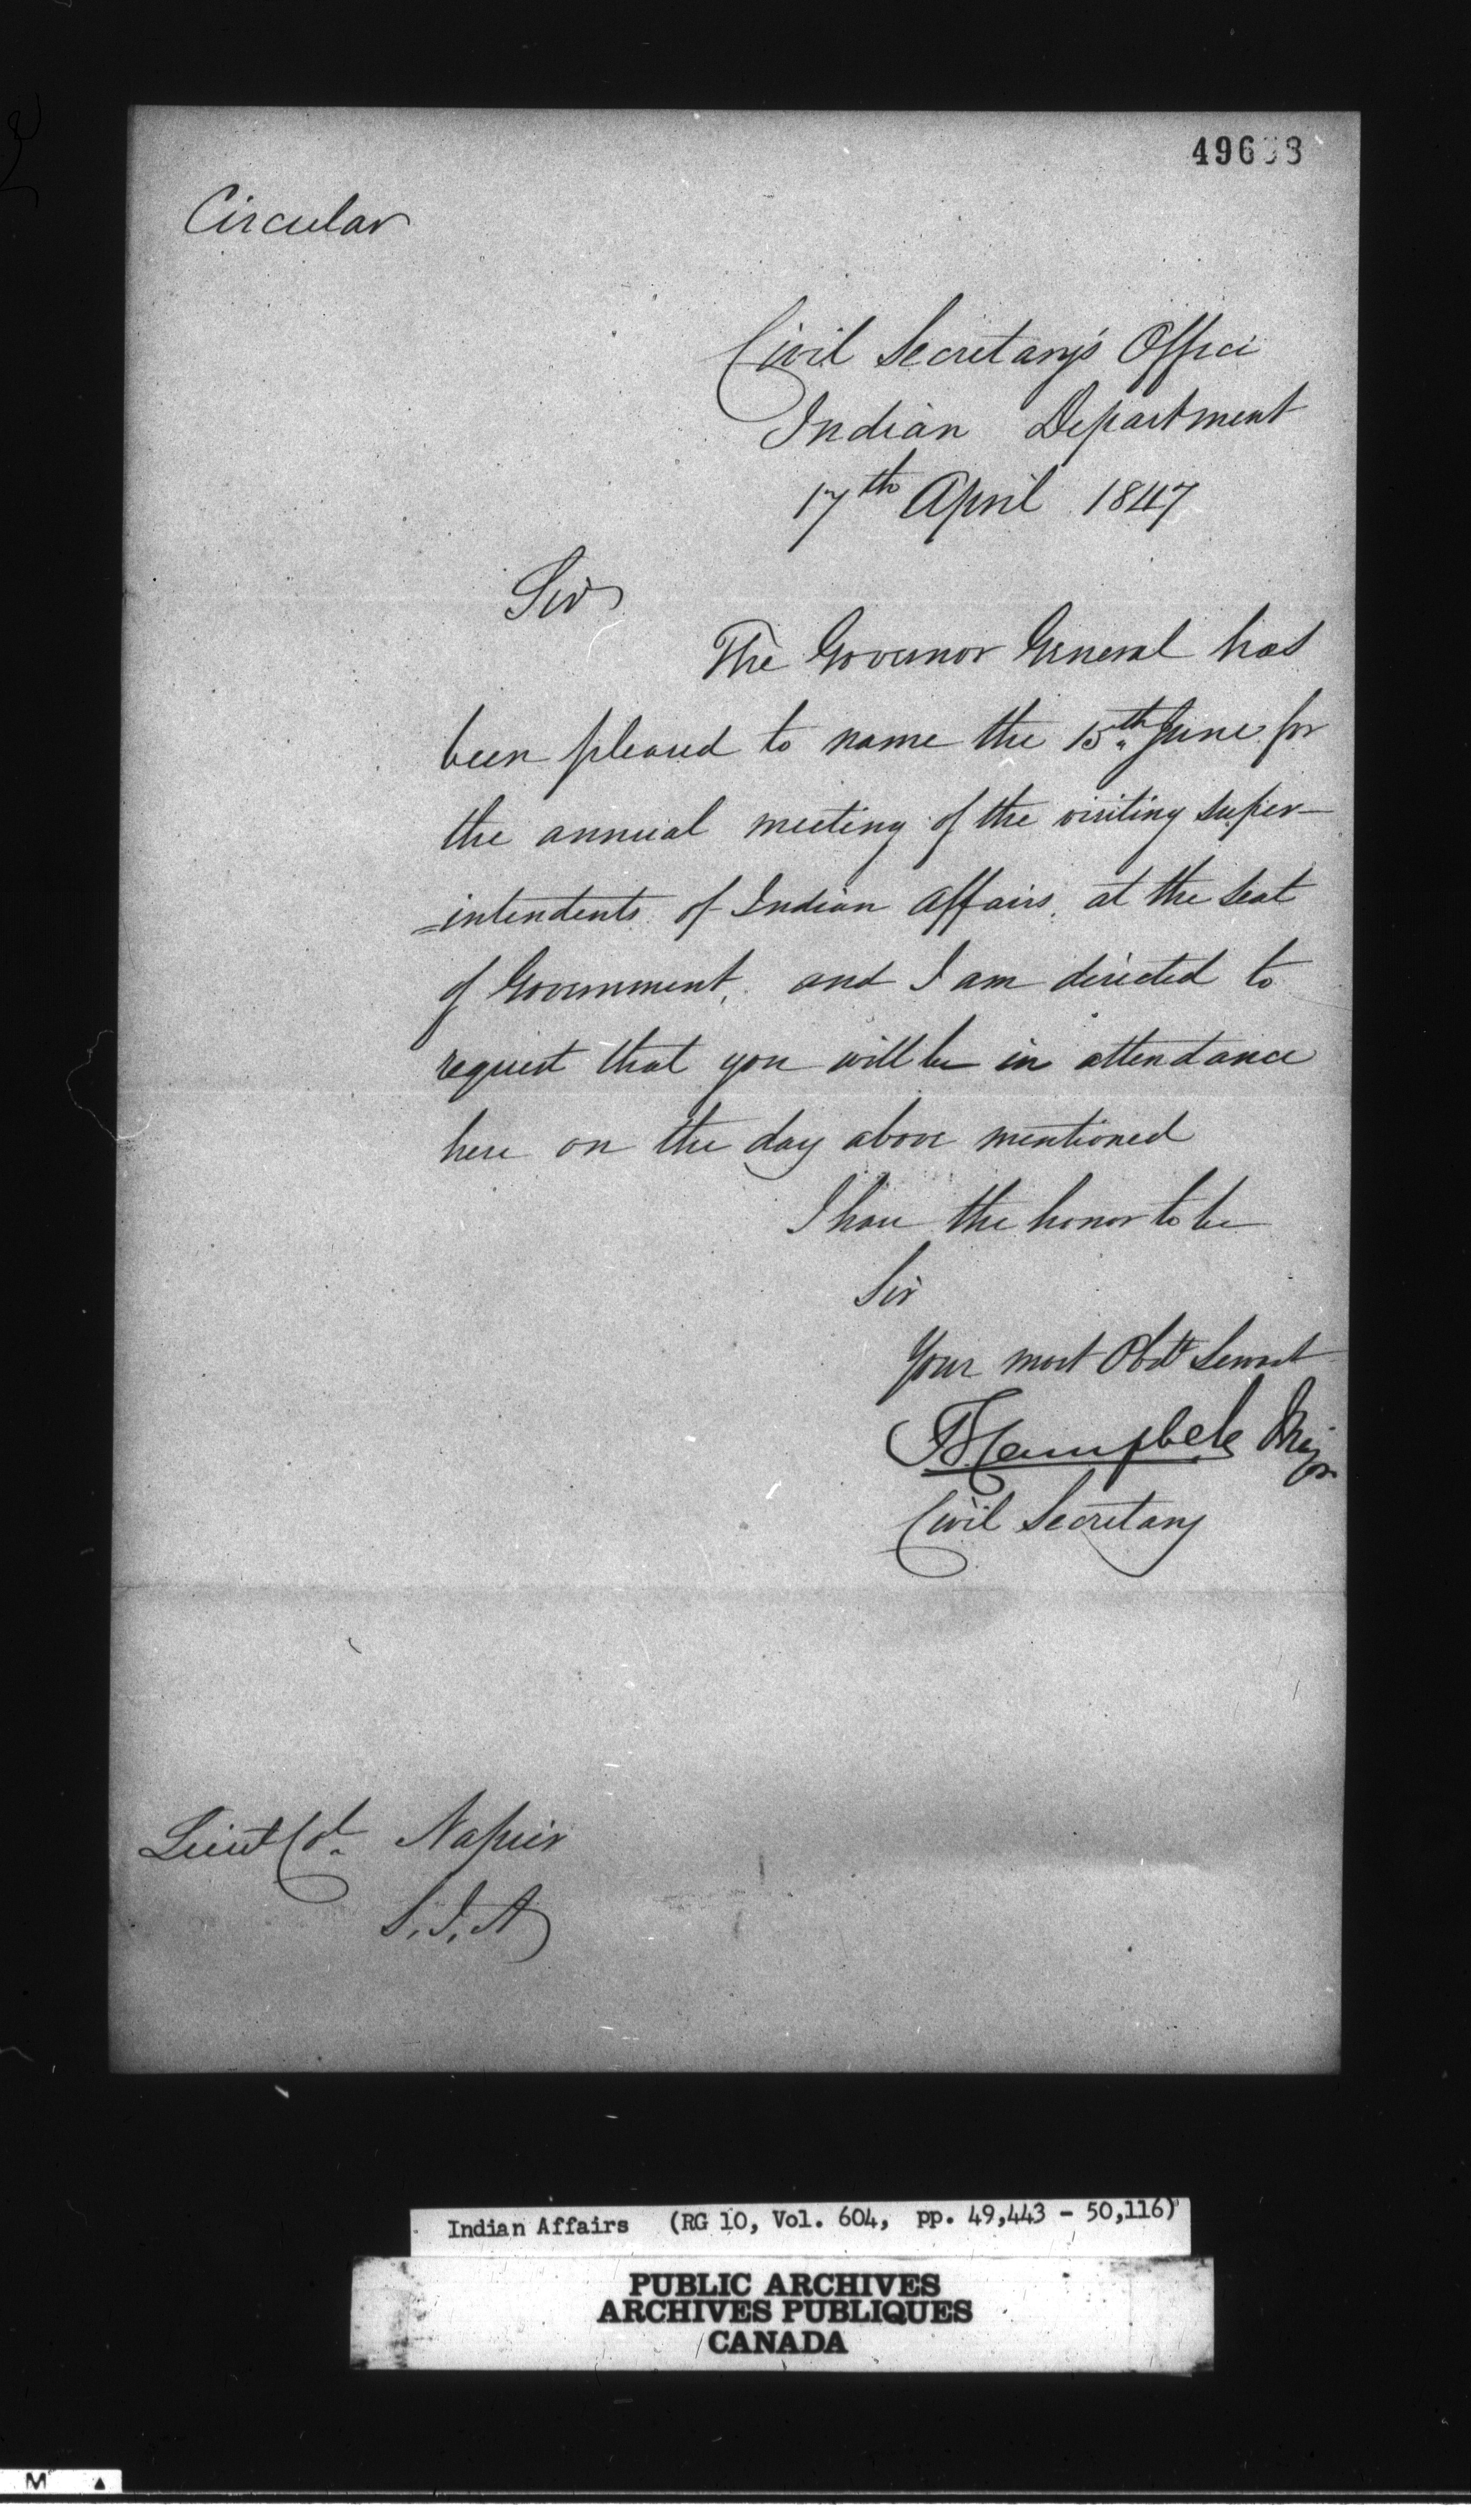 Circular
Civil Secretary's Office
Indian Department
17th April 1847
Sir
The Governor General has
been pleased to name the 15th June for
the annual meeting of the visiting super-
=intendents of Indian Affairs, at the seat
of Government, and I am directed to
request that you will be in attendance
here on the day above mentioned
I have the honor to be
Sir
Your most Obdt Servant
Campbell Major
Civil Secretary
Lieut Col. Napier
S.I.A
Indian Affairs (RG 10, Vol. 604, pp. 49,443 - 50,116)
PUBLIC ARCHIVES
ARCHIVES PUBLIQUES
CANADA
M